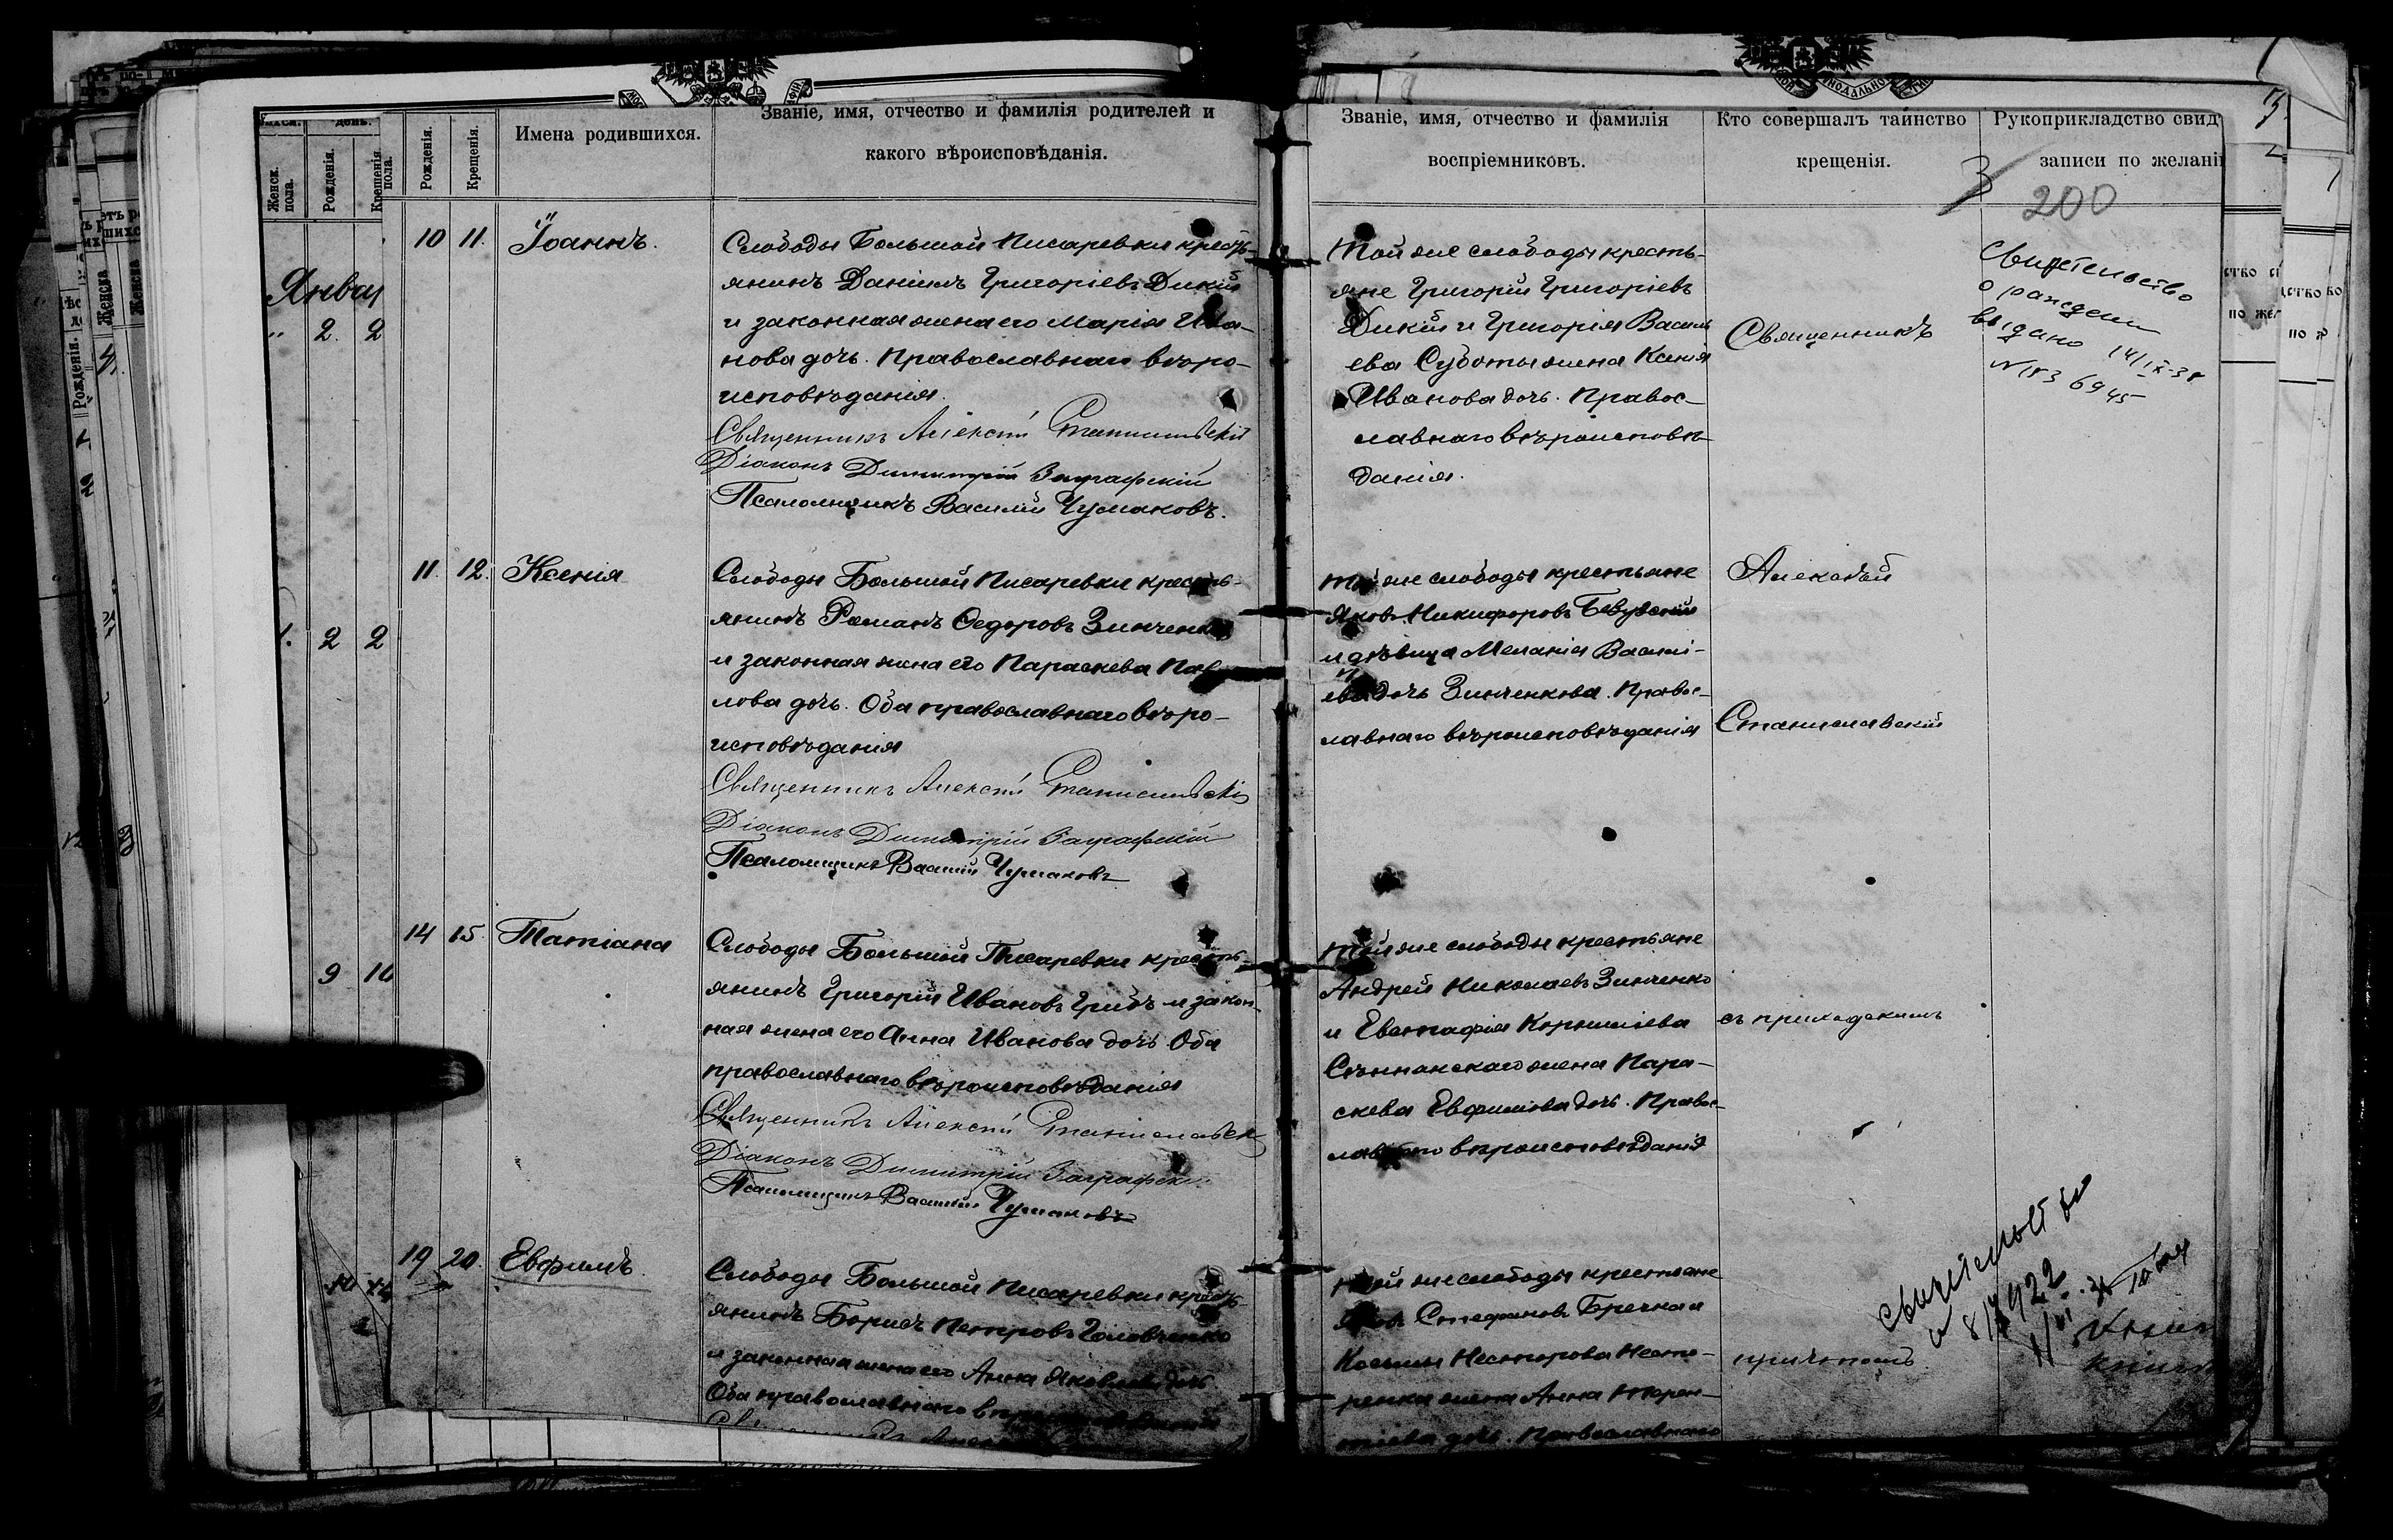 Имена родившихся.
Званіе, имя, отчество и фамилія родителей и
какого вѣроисповѣданія.
Женск. пола.
Рожденія.
Крещенія
Рожденія.
Крещенія.
10 11. Іоаннъ.
Слободы Большой Писаревки кресть-
янинъ Даніилъ Григоріевъ Дикій
и законная жена его Марія Ива-
нова дочь. Православнаго вѣро-
исповѣданія.
Священникъ Алексій Станиславскій
Діаконъ Димитрій
Псаломщикъ Василій Чумаковъ.
Январ
2. 2
11. 12. Ксенія
Слободы Большой Писаревки кресть-
янинъ Романъ Ѳедоровъ Зинченко
и законная жена его Параскева Пав-
лова дочь. Оба православнаго вѣро-
исповѣданія
Священникъ Алексій Станиславскій
Діаконъ Димитрій
Псаломщикъ Василій Чумаковъ
2 2
14 15. Татіана
Слободы Большой Писаревки кресть-
янинъ Григорій Ивановъ Грибъ и закон-
ная жена его Анна Иванова дочь Оба
православнаго вѣроисповѣданія
Священникъ Алексій Станиславск
Діаконъ Димитрій
Псаломщикъ Василій Чумаковъ
9 10
19 20. Евфимъ.
Слободы Большой Писаревки кресть-
янинъ Борисъ Петровъ Головченко
и законная жена его Анна Яковлева дочь
Оба православнаго
Званіе, имя, отчество и фамилія
воспріемниковъ.
Кто совершалъ таинство
крещенія.
Рукоприкладство свид
записи по желані
3
200
Той же слободы кресть-
яне Григорій Григоріевъ
Дикій и Григорія Васил
ева Суботы жена Ксенія
Иванова дочь. Правос-
лавнаго вѣроисповѣ-
данія.
Священникъ
Свидетельство
о рождении
выдано 14/IX-38
Той же слободы крестьяне
Яковъ Никифоровъ
и дѣвица Меланія Василі-
ева дочь Зинченкова. Правос-
лавнаго вѣроисповѣданія
Алексѣй
Станиславскій
Той же слободы крестьяне
Андрей Николаевъ Зинченко
и Евстафія Корниліева
жена Пара-
скева Евфимова дочь. Правос-
лавнаго вѣроисповѣданія
съ приходскимъ
Той же слободы крестьяне
Яковъ Стефановъ
Косьмы Несторова Несте-
ренка жена Анна
дочь. Православнаго
причтомъ.